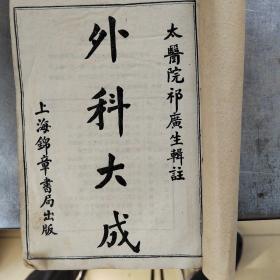 太醫院祁廣生輯註
外科大成
上海錦章書局出版